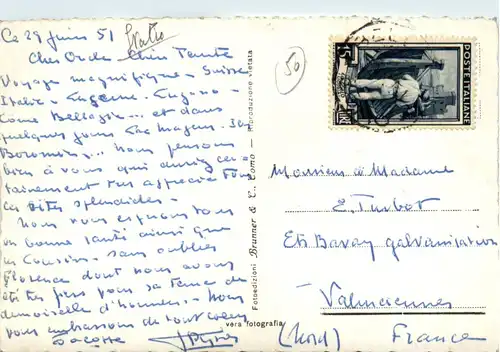 Ce 29 juin 51
Italie
Cher Oncle Chère Tante
Voyage magnifique - Suisse
Italie - Lucerne. Lugano -
Come Bellagio... et dans
quelques jours Lac Majeur. Iles
Boromées... nous pensons
bien à vous qui auriez cer-
tainement très apprécié tous
ces sites splendides -
Nous vous espérons tous
en bonne santé ainsi que
les Cousins - sans oublier
Florence dont nous avons
été très pris par sa tenue de
demoiselle d'honneur. - Nous
vous embrassons de tout coeur
50
Fotoedizioni Brunner & C. Como - Riproduzione vietata
vera fotografia
15
LIRE
POSTE ITALIANE
Monsieur & Madame
E. Turbot
Ets Bavay galvanisation
Valenciennes
(Nord) France